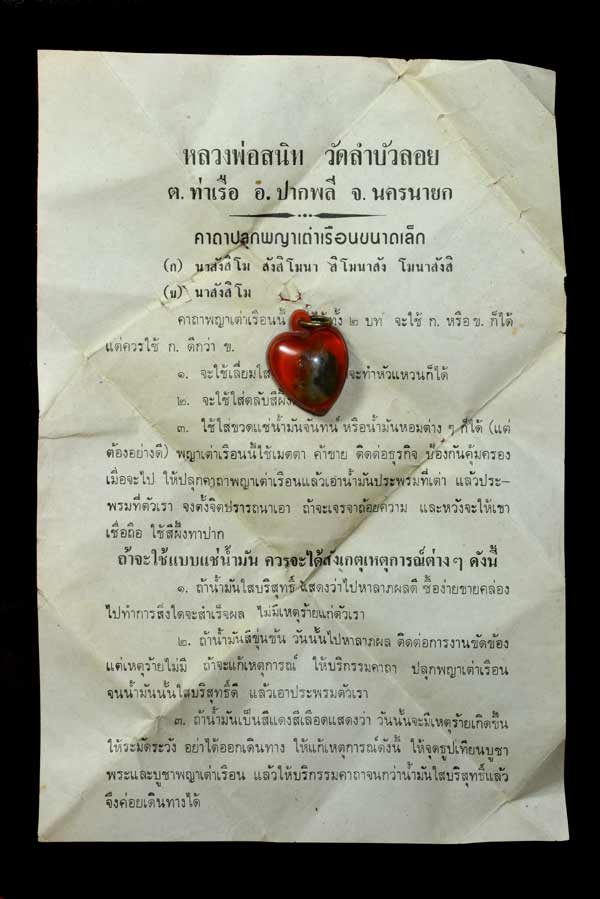 หลวงพ่อสนิท วัดลำบัวลอย
ต. ท่าเรือ อ. ปากพลี จ. นครนายก
คาถาปลุกพญาเต่าเรือนขนาดเล็ก
(ก) นาสังสิโม สังสิโมนา สิโมนาสัง โมนาสังสิ
(ข) นาสังสิโม
คาถาพญาเต่าเรือนนี้ ใช้ได้ทั้ง ๒ บท จะใช้ ก. หรือ ข. ก็ได้
แต่ควรใช้ ก. ดีกว่า ข.
๑. จะใช้เลี่ยมใส จะทำหัวแหวนก็ได้
๒. จะใช้ใส่ตลับสีผึ้ง
๓. ใช้ใส่ขวดแช่น้ำมันจันทน์ หรือน้ำมันหอมต่าง ๆ ก็ได้ (แต่
ต้องอย่างดี) พญาเต่าเรือนนี้ใช้เมตตา ค้าขาย ติดต่อธุรกิจ ป้องกันคุ้มครอง
เมื่อจะไป ให้ปลุกคาถาพญาเต่าเรือนแล้วเอาน้ำมันประพรมที่เต่า แล้วประ-
พรมที่ตัวเรา จงตั้งจิตปรารถนาเอา ถ้าจะเจรจาถ้อยความ และหวังจะให้เขา
เชื่อถือ ใช้สีผึ้งทาปาก
ถ้าจะใช้แบบแช่น้ำมัน ควรจะได้สังเกตุเหตุการณ์ต่าง ๆ ดังนี้
๑. ถ้าน้ำมันใสบริสุทธิ์ แสดงว่าไปหาลาภผลดี ซื้อง่ายขายคล่อง
ไปทำการสิ่งใดจะสำเร็จผล ไม่มีเหตุร้ายแก่ตัวเรา
๒. ถ้าน้ำมันสีขุ่นข้น วันนั้นไปหาลาภผล ติดต่อการงานขัดข้อง
แต่เหตุร้ายไม่มี ถ้าจะแก้เหตุการณ์ ให้บริกรรมคาถา ปลุกพญาเต่าเรือน
จนน้ำมันนั้นใสบริสุทธิ์ดี แล้วเอาประพรมตัวเรา
๓. ถ้าน้ำมันเป็นสีแดงสีเลือดแสดงว่า วันนั้นจะมีเหตุร้ายเกิดขึ้น
ให้ระมัดระวัง อย่าได้ออกเดินทาง ให้แก้เหตุการณ์ดังนี้ ให้จุดธูปเทียนบูชา
พระและบูชาพญาเต่าเรือน แล้วให้บริกรรมคาถาจนกว่าน้ำมันใสบริสุทธิ์แล้ว
จึงค่อยเดินทางได้